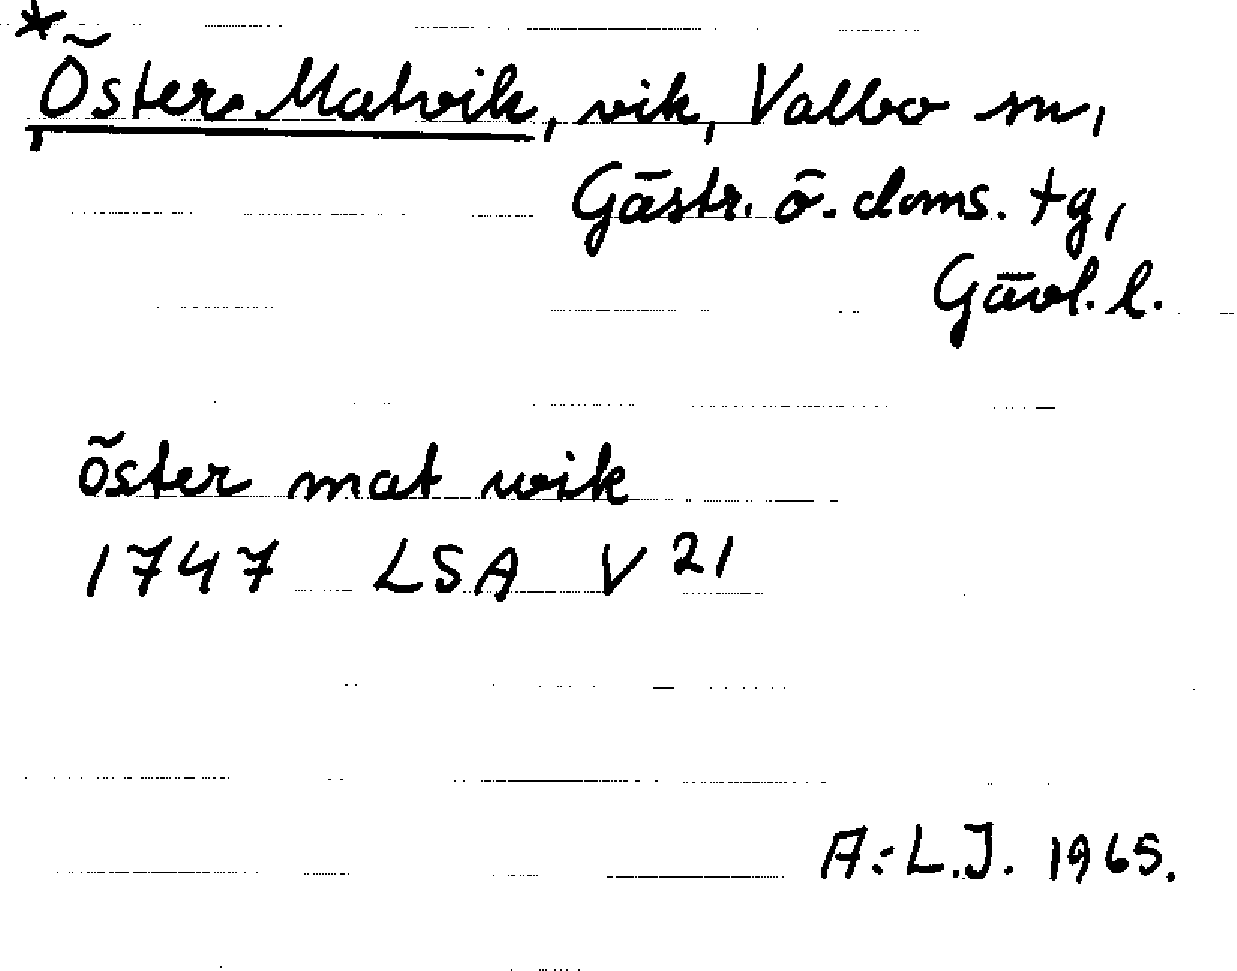 * Öster-Matvik, vik, Valbo sn,
Gästr. ö. doms. tg,
Gävl. l.
öster mat wik
1747 LSA V 21
A:L.J. 1965.